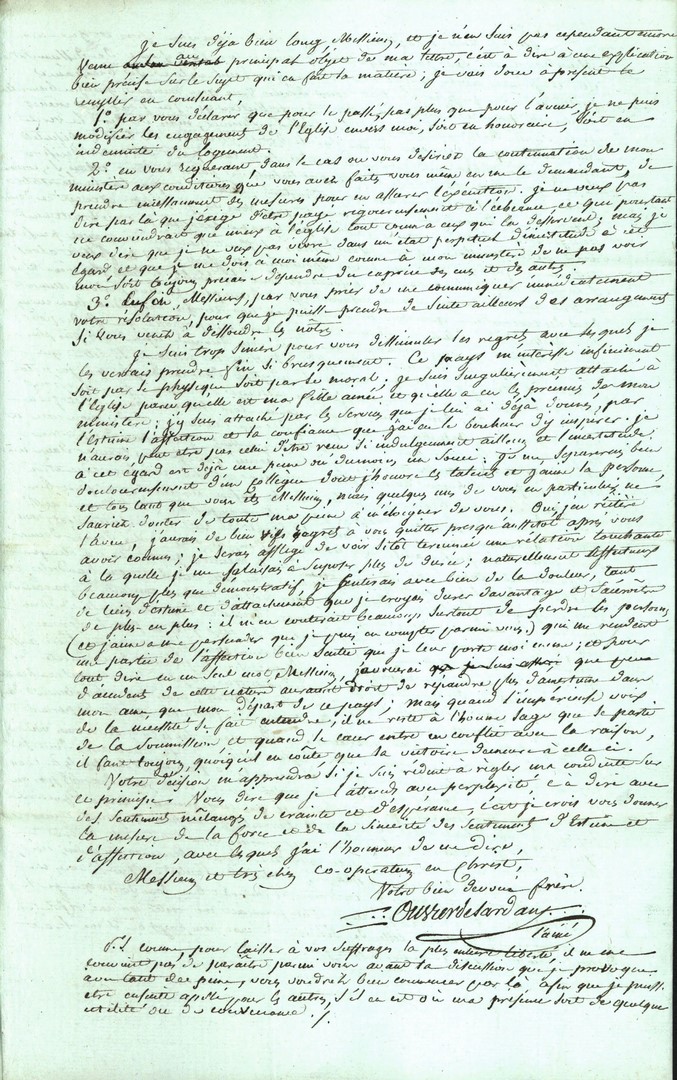 je suis déja bien long, Messieurs, et je n'en suis pas cependant encore
venu au principal objet de ma lettre, c'est à dire à une explication
bien précise sur le sujet qui en fait la matière; je vais donc à présent la
remplir en concluant,
1.° par vous déclarer que pour le passé, pas plus que pour l'avenir, je ne puis
modifier les engagements de l'Eglise envers moi, soit en honoraires, soit en
indemnité du logement.
2.° en vous requérant, dans le cas ou vous desiriez la continuation de mon
ministère aux conditions que vous avez faites vous même en me le demandant, de
prendre incessamment des mesures pour en assurer l'exécution. je ne veux pas
dire par là que j'exige d'être payé rigoureusement à l'échéance, ce qui pourtant
ne conviendrait que mieux à l'église tout comme à ceux qui la desservent, mais je
veux dire que je ne veux pas vivre dans un état perpétuel d'incertitude à cet
égard et que je me dois à moi même comme à mon ministère de ne pas voir
mon sort toujours précaire dépendre du caprice des uns et des autres.
3.° Enfin, Messieurs, par vous prier de me communiquer immédiatement
votre résolution, pour que je puisse prendre de suite ailleurs des arrangements
si vous venez à dissoudre les nôtres.
je suis trop sincère pour vous dissimuler les regrets avec lesquels je
les verrais prendre fin si brusquement. Ce pays m'intéresse infiniment
soit par le physique soit par le moral; je suis singulièrement attaché à
l'Eglise parce qu'elle est ma fille ainée et qu'elle a eu les prémices de mon
ministère; j'y suis attaché par les services que je lui ai déjà donnés, par
l'estime l'affection et la confiance que j'ai eu le bonheur d'y inspirer. je
n'aurois peut être pas celui d'être reçu si indulgemment ailleurs et l'incertitude
à cet égard est déjà une peine ou du moins un souci; je me séparerai bien
douloureusement d'un collègue dont j'honore les talents et j'aime la personne,
et tous tant que vous êtes Messieurs, mais quelques uns de vous en particulier, ne
sauriez douter de toute ma peine à m'éloigner de vous. Oui, j'en réitère
l'aveu, j'aurais de bien vifs regrets à vous quitter presqu'aussitot après vous
avoir connus; je serais affligé de voir sitôt terminée une relation touchante
à la quelle je me plaisais à supposer plus de durée; naturellement affectueux
beaucoup plus que démonstratif, je sentirais avec bien de la douleur, tant
de liens d'estime et d'attachement que je croyais durer davantage et s'accroître
de plus en plus: il m'en couterait beaucoup surtout de perdre les personnes
(et j'aime a me persuader que je puis en compter parmi vous) qui me rendent
une partie de l'affection bien sentie que je leur porte moi même; et pour
tout dire en un seul mot, Messieurs, j'avouerai que peu
d'accidens de cette nature auraient droit de répandre plus d'amertume dans
mon ame que mon départ de ce pays; mais quand l'impérieuse voix
de la nécessité se fait entendre, il ne reste à l'homme sage que le parti
de la soumission et quand le cœur entre en conflit avec la raison,
il faut toujours, quoiqu'il en coûte que la victoire demeure à celle ci.
Votre décision m'apprendra si je suis réduit à régler ma conduite sur
ce principe. Vous dire que je l'attends avec perplexité c. à dire avec
des sentiments mélangés de crainte et d'espérance, c'est je crois vous donner
la mesure de la force et de la sincérité des sentiments d'estime et
d'affection, avec lesquels j'ai l'honneur de me dire,
Messieurs et très chers co-opérateurs en Christ,
Votre bien dévoué frère.
l'ainé
P.S. comme pour laisser à vos suffrages la plus entière liberté, il ne me
convient pas de paraître parmi vous avant la discussion que je provoque
avec tant de peine, vous voudrez bien commencer par là, afin que je puisse
etre ensuite appellé pour les autres, s'il en est où ma présence soit de quelque
utilité ou de convenance ./.